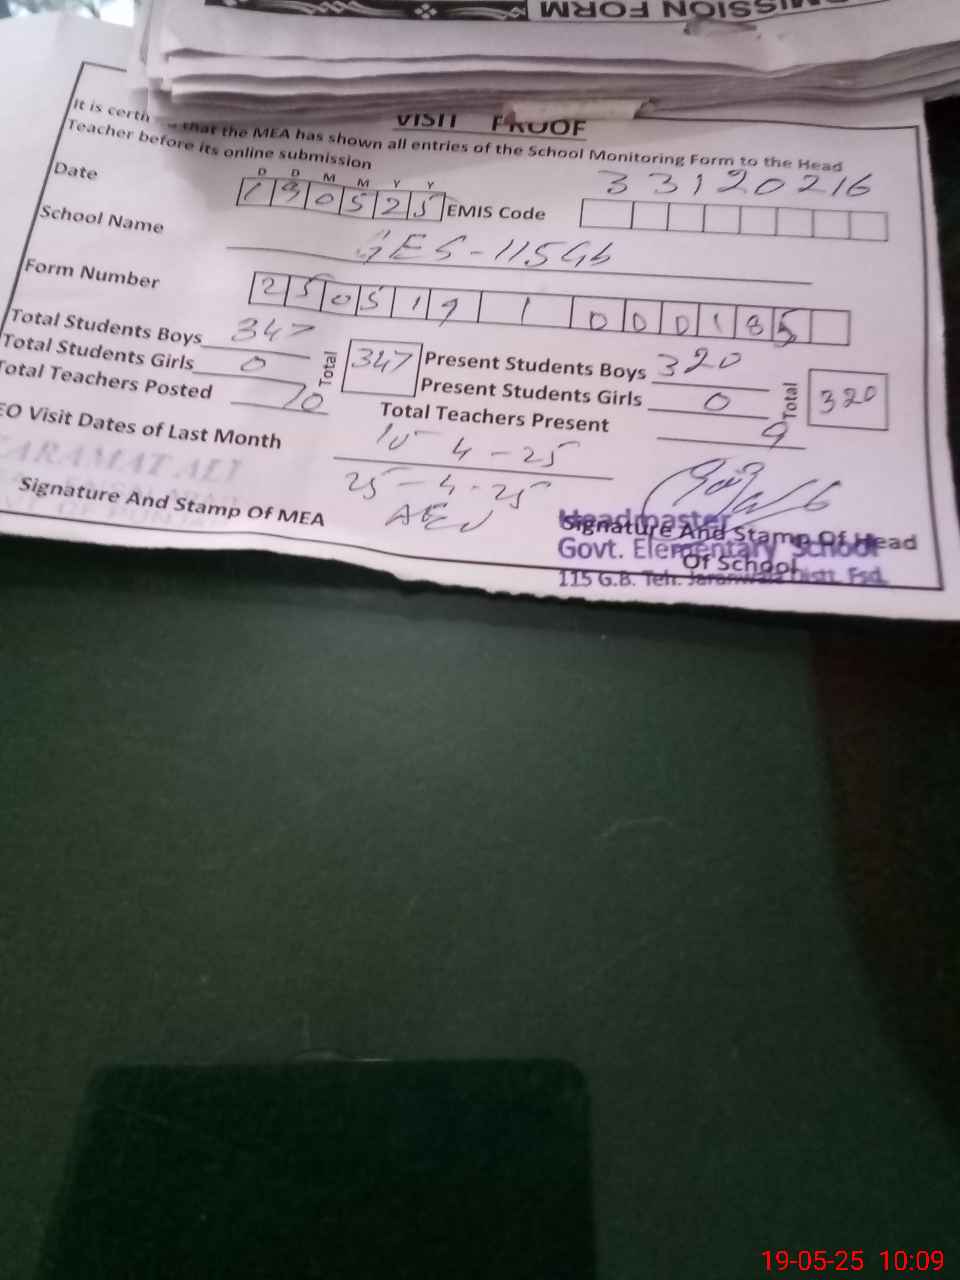 MISSION FORM
VISIT PROOF
It is certi that the MEA has shown all entries of the School Monitoring Form to the Head
Teacher before its online submission
Date D D M M Y Y 190525 EMIS Code 33120216
School Name GES-115Gb
Form Number 250519 1 000185
Total Students Boys 347 Total 347 Present Students Boys 320 Total 320
Total Students Girls 0 Present Students Girls 0
Total Teachers Posted 10 Total Teachers Present 9
EO Visit Dates of Last Month 10-4-25
25-4-25
KARAMAT ALI
Signature And Stamp Of MEA AEO
Signature And Stamp Of Head
Of School
Headmaster
Govt. Elementary School
115 G.B. Teh. Jaranwala Distt. Fsd.
19-05-25 10:09